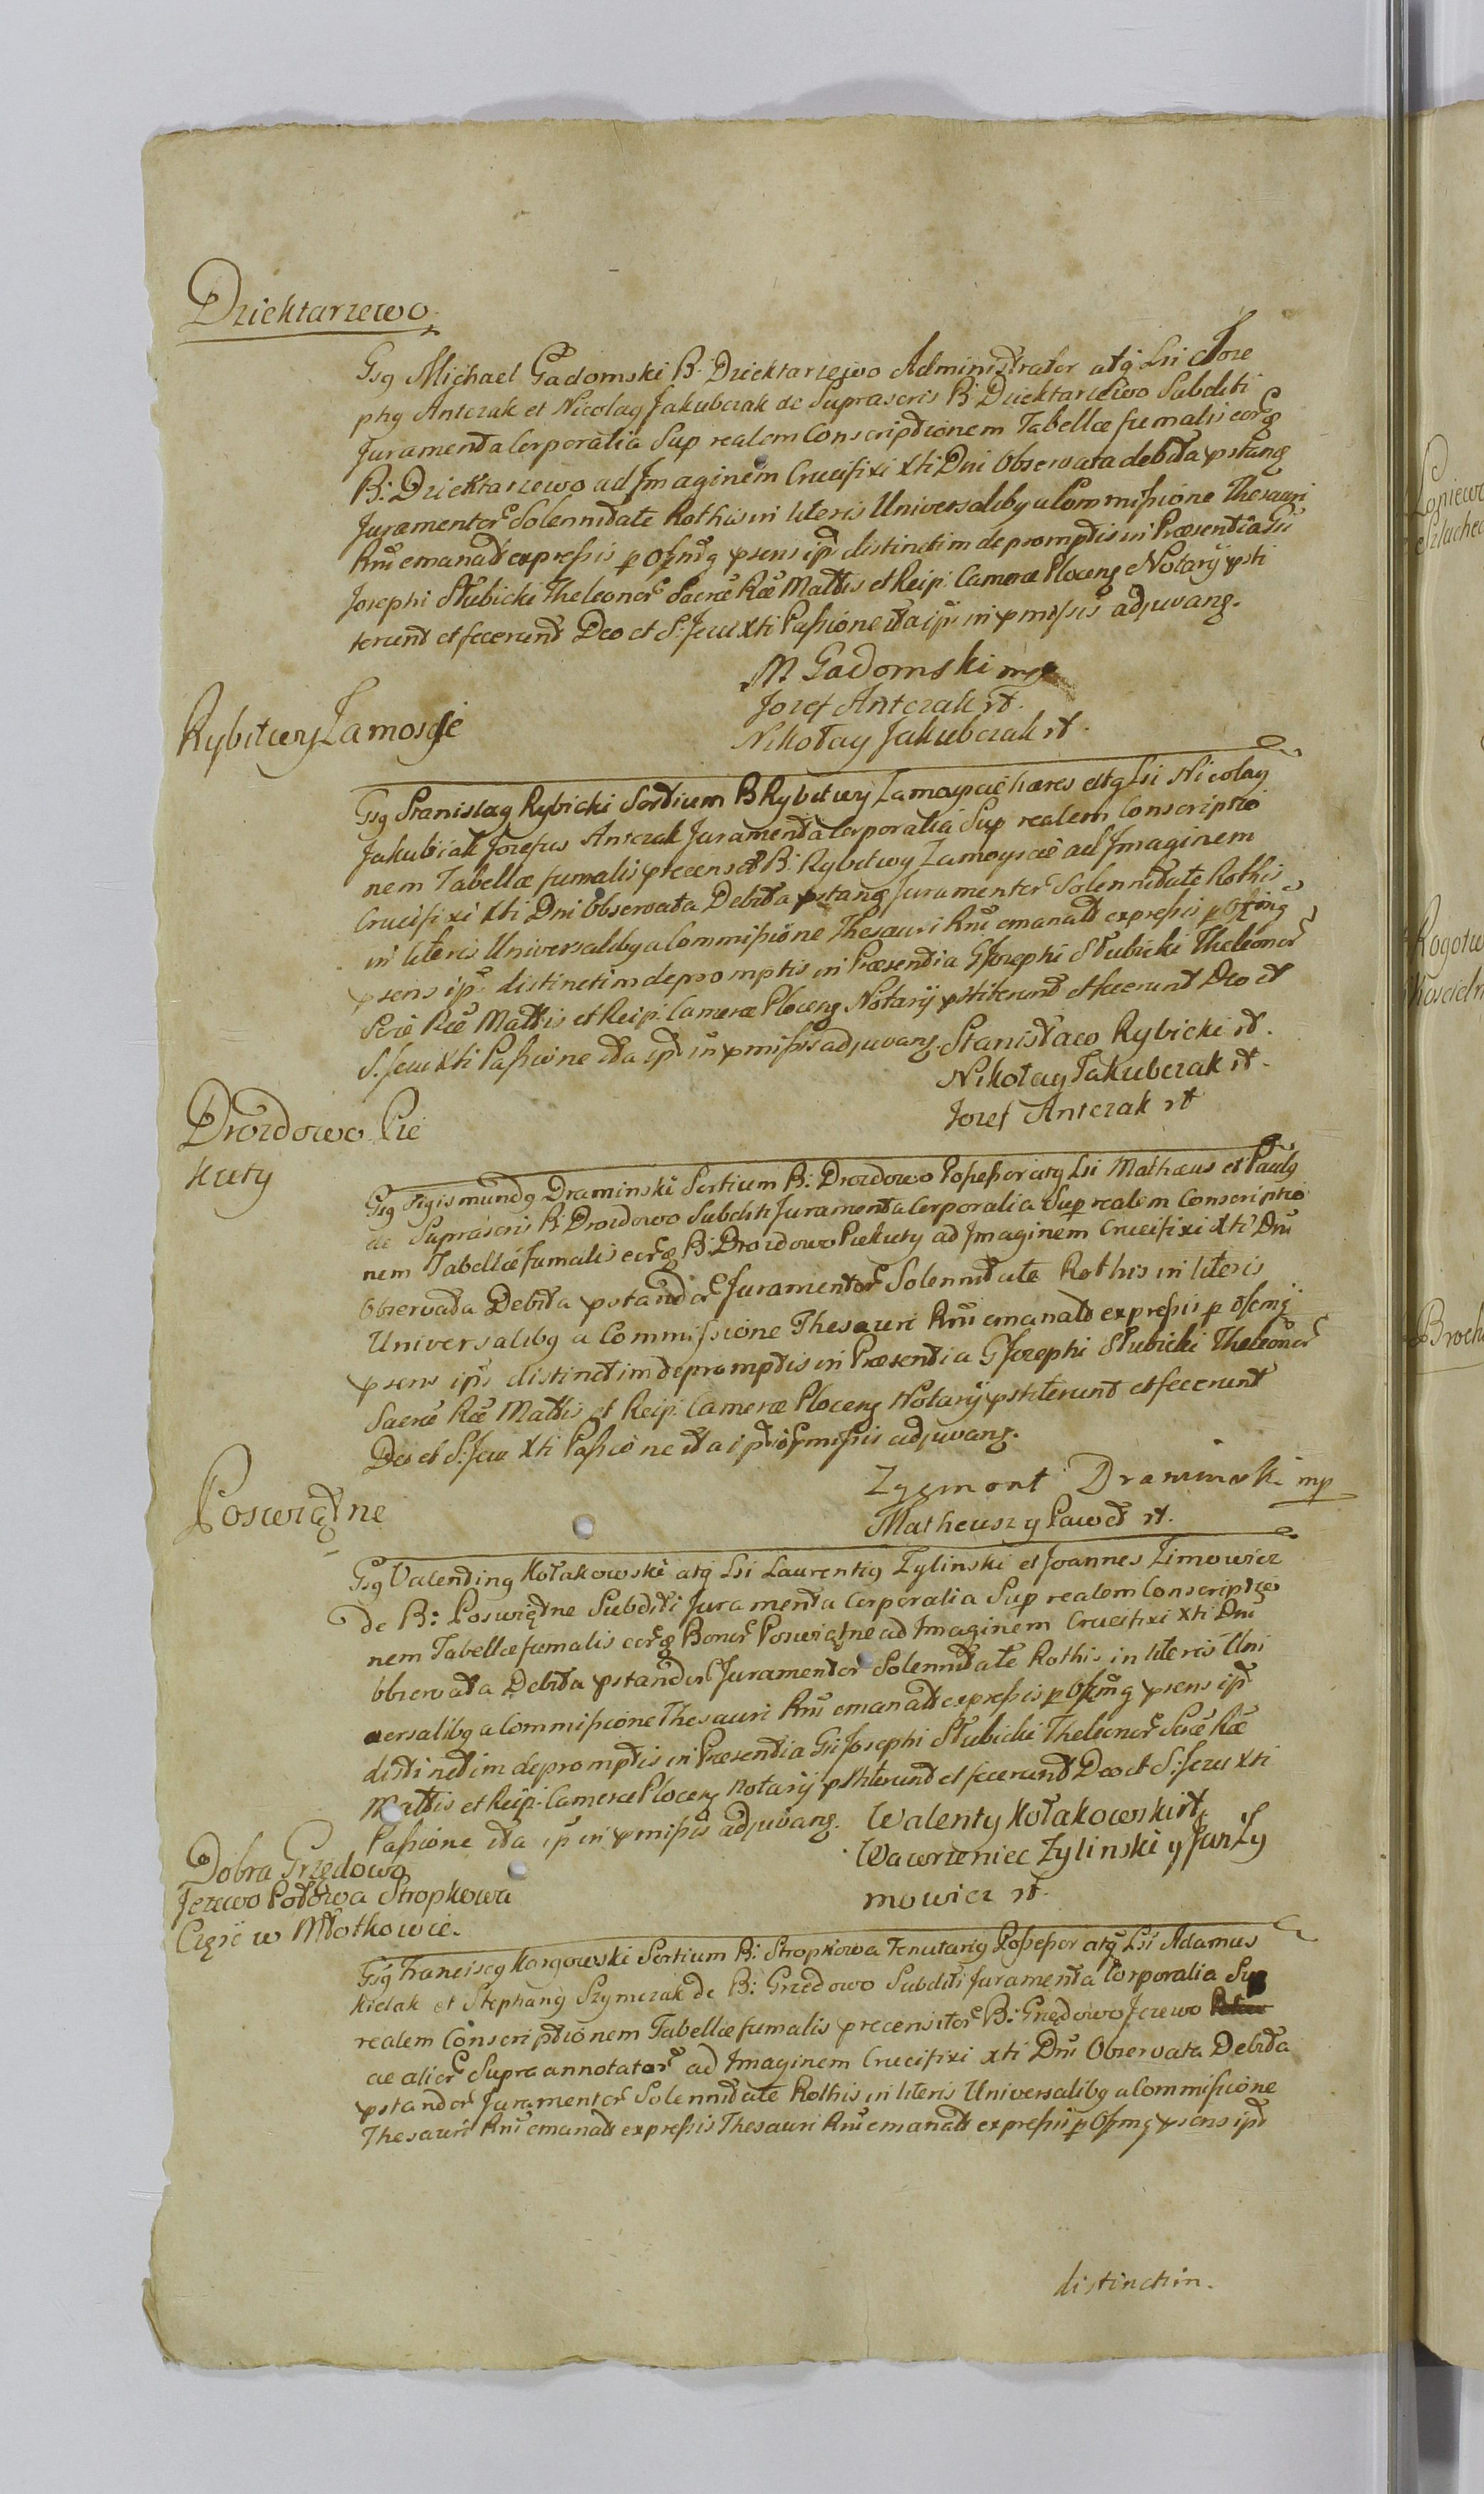 Dziektarzewo
Gsg Michael Gadomski B: Dziektarzewo Administrator atq Lsi Jose
phg Antczak et Nicolag Jakubczak de Suprascris B: Dziektarzewo Subditi
Juramenta Corporalia Sup realem Conscriptionem Tabellæ fumalis
B: Dziektarzewo ad Imaginem Crucifixi Xti Dni Observata debita
Solennitate Rothis in literis Universalibg a Commissione Thesauri
Rni emanat expressis distinctim depromptis in Præsentia
Josephi Słubicki Theleonor Sacræ Ræ Mattis et Reip: Cameræ Plocens Notarÿ psti
terunt et fecerunt Deo et S: Jesu Xti Passione ita in pmissis adjuvang.
M Gadomski mp
Jozef Antczak rt.
Nikołay Jakubczak rt.
Rybitwy Zamoscie
Gsg Stanislag Rybicki Sortium B Rybitwy Zamoyscie hæres atq Lsi Nicolag
Jakubiak Josefus Antczak Juramenta Corporalia Sup realem Conscriptio
nem Tabellæ fumalis B: Rybitwy Zamoyscie ad Imaginem
Crucifixi Xti Dni Observata Debita Solennitate Rothis
in literis Universalibg a Commissione Thesauri Rni emanatt expressis
distinctim depromptis in Præsentia G Josephi Słubicki Theleonor
Scræ Ræ Mattis et Reip: Cameræ Plocens Notarÿ pstiterunt et fecerunt Deo et
S. Jesu Xti Passione ita in pmissis adjuvang. Stanisław Rybicki rt.
Nikołay Jakubczak rt.
Jozef Antczak rt
Drozdowo Pie
kuty
Gsg Sigismundg Draminski Sortium B: Drozdowo Possessor atq Lsi Mathæus et Paulg
de Suprascris B: Drozdowo Subditi Juramenta Corporalia Sup realem Conscriptio
nem Tabellæ fumalis B: Drozdowo Piekuty ad Imaginem Crucifixi Xti Dni
Observata Debita pstandor Juramentor Solennitate Rothis in literis
Universalibg a Commissione Thesauri Rni emanatt expressis
distinctim depromptis in Præsentia G Josephi Słubicki Theleonor
Sacræ Ræ Mattis et Reip: Cameræ Plocens Notarÿ pstiterunt et fecerunt
Deo et S: Jesu Xti Passione ita pmissis adjuvang.
Zygmont Draminski mp
Matheusz y Paweł rt.
Poswiętne
Gsg Valenting Kołakowski atq Lsi Laurentig Zylinski et Joannes Zimowicz
de B: Poswiętne Subditi Juramenta Corporalia Sup realem Conscriptio
nem Tabellæ fumalis Bonor Poswiętne ad Imaginem Crucifixi Xti Dni
Observata Debita pstandor Juramentor Solennitate Rothis in literis Uni
versalibg a Commissione Thesauri Rni emanatt expressis
distinctim depromptis in Præsentia Gsi Josephi Słubicki Theleonor Scræ Ræ
Mattis et Reip: Cameræ Plocens Notarÿ pstiterunt et fecerunt Deo et S: Jesu Xti
Passione ita in pmissis adjuvang. Walenty Kołakowski rt
Wawrzeniec Zylinski y Jan Zy
mowicz rt.
Dobra Grzędowo
Jezewo Połowa Stropkowa
Częsć w Młotkowie.
Gsg Franciscg Kargowski Sortium B: Stropkowa Tenutarig Possessor atq Lsi Adamus
Kielak et Stephang Szymczak de B: Grzedowo Subditi Juramenta Corporalia Sup
realem Conscriptionem Tabellæ fumalis precensitor B: Grzędowo Jezewo
ac alior Supra annotator ad Imaginem Crucifixi Xti Dni Observata Debita
pstandor Juramentor Solennitate Rothis in literis Universalibg a Commissione
Thesauri Rni emanatt expressis Thesauri Rni emanatt expressis
distinctim.